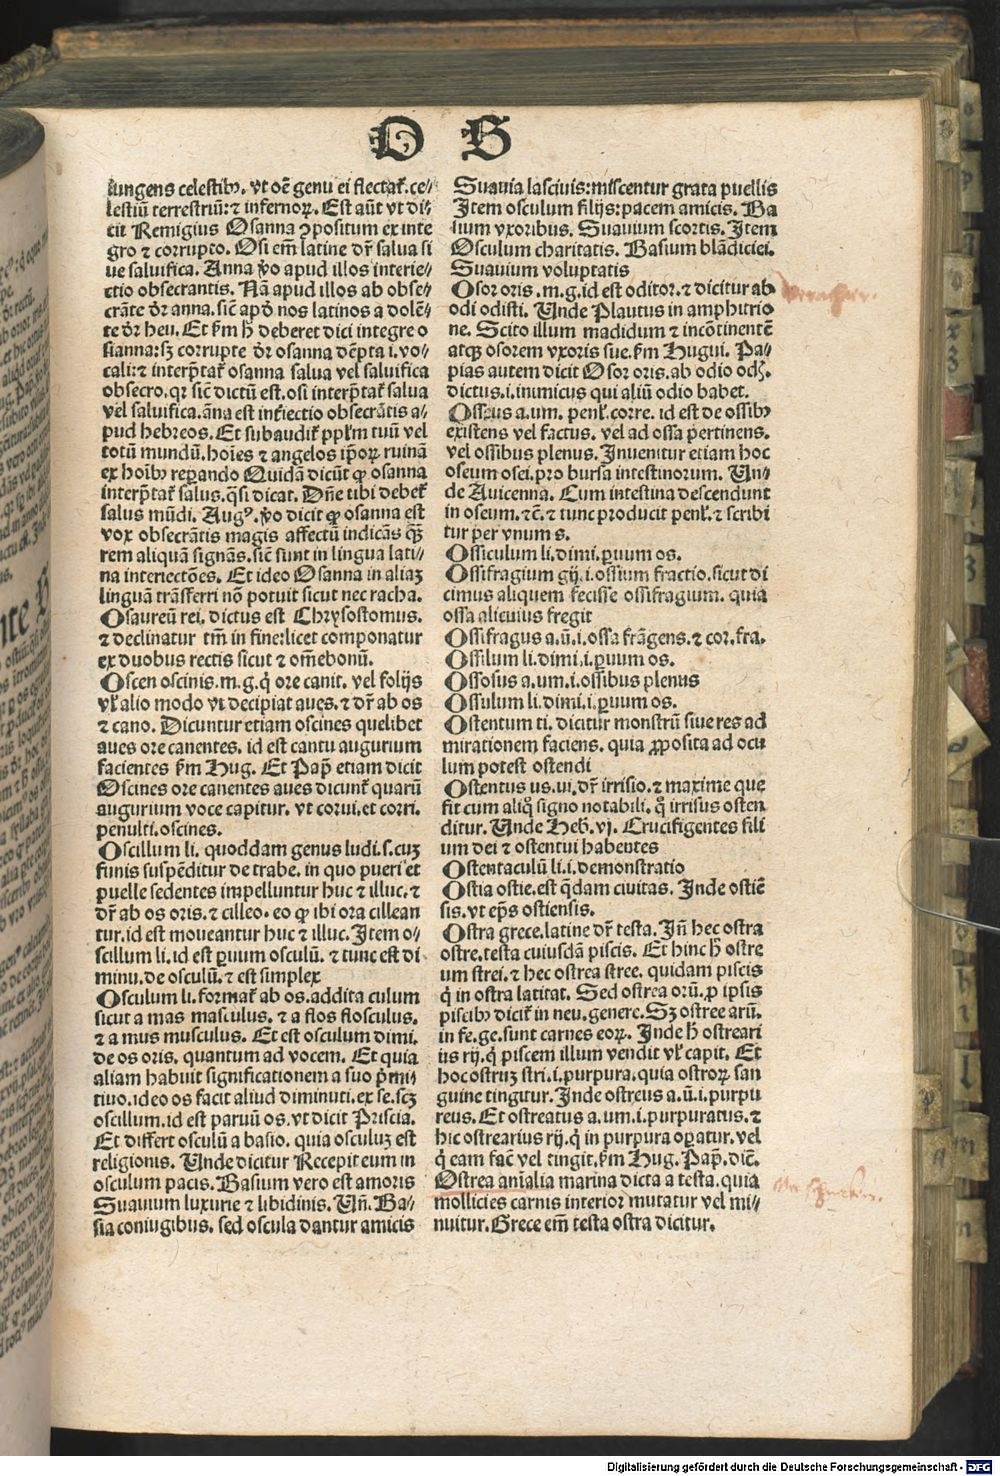 O S
iungens celestibꝰ. vt oē genu ei flectat̄. ce⸗
lestiū terrestriū: ⁊ infernoꝝ. Est aūt vt di⸗
cit Remigius Osanna ꝯpositum ex inte
gro ⁊ corrupto. Osi em̄ latine dr̄ salua si
ue saluifica. Anna ꝟo apud illos interie⸗
ctio obsecrantis. Nā apud illos ab obse⸗
crāte dr̄ anna. sic̄ apd̄ nos latinos a dolē⸗
te dr̄ heu. Et ẜm h̄ deberet dici integre o
sianna: sꝫ corrupte dr̄ osanna dēpta i. vo⸗
cali: ⁊ interp̄tat̄ osanna salua vel saluifica
obsecro. qꝛ sic̄ dictū est. osi interp̄tat̄ salua
vel saluifica. āna est int̄iectio obsecrātis a⸗
pud hebreos. Et subaudit̄ pplm̄ tuū vel
totū mundū. hoīes ⁊ angelos ip̄oꝝ ruinā
ex hoībꝰ reꝑando Quidā dicūt ꝙ osanna
interp̄tat̄ salus. q̄si dicat. Dn̄e tibi debet̄
salus mūdi. Augꝰ. ꝟo dicit ꝙ osanna est
vox obsecrātis magis affectū indicās q̄ꝫ
rem aliquā signās. sic̄ sunt in lingua lati⸗
na interiectōes. Et ideo Osanna in aliaꝫ
linguā trāsferri nō potuit sicut nec racha.
Osaureū rei. dictus est Chrysostomus.
⁊ declinatur tm̄ in fine: licet componatur
ex duobus rectis sicut ⁊ om̄ebonū.
Oscen oscinis. m. g. q̇ ore canit. vel folijs
vl̓ alio modo vt decipiat aues. ⁊ dr̄ ab os
⁊ cano. Dicuntur etiam oscines quelibet
aues ore canentes. id est cantu augurium
facientes ẜm Hug. Et Pap̄ etiam dicit
Oscines ore canentes aues dicunt̄ quarū
augurium voce capitur. vt corui. et corri.
penulti. oscines.
Oscillum li. quoddam genus ludi. s. cuꝫ
funis suspēditur de trabe. in quo pueri et
puelle sedentes impelluntur huc ⁊ illuc. ⁊
dr̄ ab os oris. ⁊ cilleo. eo ꝙ ibi ora cillean
tur. id est moueantur huc ⁊ illuc. Item o⸗
scillum li. id est ꝑuum osculū. ⁊ tunc est di
minu. de osculū. ⁊ est simplex
Osculum li. format̄ ab os. addita culum
sicut a mas masculus. ⁊ a flos flosculus.
⁊ a mus musculus. Et est osculum dimi.
de os oris. quantum ad vocem. Et quia
aliam habuit significationem a suo p̄mi⸗
tiuo. ideo os facit aliud diminuti. ex se. scꝫ
oscillum. id est paruū os. vt dicit Priscia.
Et differt osculū a basio. quia osculuꝫ est
religionis. Unde dicitur Recepit eum in
osculum pacis. Basium vero est amoris
Suauium luxurie ⁊ libidinis. Un̄. Ba⸗
sia coniugibus. sed oscula dantur amicis
Suauia lasciuis: miscentur grata puellis
Item osculum filijs: pacem amicis. Ba
sium vxoribus. Suauium scortis. Item
Osculum charitatis. Basium blādiciei.
Suauium voluptatis
Osor oris. m. g. id est oditor. ⁊ dicitur ab
odi odisti. Unde Plautus in amphitrio
ne. Scito illum madidum ⁊ incōtinentē
atqꝫ osorem vxoris sue. ẜm Hugui. Pa⸗
pias autem dicit Osor oris. ab odio odꝭ.
dictus. i. inimicus qui aliū odio habet.
Osseus a. um. penl̓. corre. id est de ossibꝰ
existens vel factus. vel ad ossa pertinens.
vel ossibus plenus. Inuenitur etiam hoc
oseum osei. pro bursa intestinorum. Un⸗
de Auicenna. Cum intestina descendunt
in oseum. ⁊c̄. ⁊ tunc producit penl̓. ⁊ scribi
tur per vnum s.
Ossiculum li. dimi. ꝑuum os.
Ossifragium gij. i. ossium fractio. sicut di
cimus aliquem fecisse ossifragium. quia
ossa alicuius fregit
Ossifragus a. ū. i. ossa frāgens. ⁊ cor. fra.
Ossilum li. dimi. i. ꝑuum os.
Ossosus a. um. i. ossibus plenus
Ossulum li. dimi. i. ꝑuum os.
Ostentum ti. dicitur monstrū siue res ad
mirationem faciens. quia ꝓposita ad ocu
lum potest ostendi
Ostentus us. ui. dr̄ irrisio. ⁊ maxime que
fit cum aliq̊ signo notabili. q̊ irrisus osten
ditur. Unde Heb̄. vj. Crucifigentes fili
um dei ⁊ ostentui habentes
Ostentaculū li. i. demonstratio
Ostia ostie. est q̄dam ciuitas. Inde ostiē
sis. vt ep̄s ostiensis.
Ostra grece. latine dr̄ testa. In̄ hec ostra
ostre. testa cuiusdā piscis. Et hinc h̄ ostre
um strei. ⁊ hec ostrea stree. quidam piscis
q̇ in ostra latitat. Sed ostrea orū. ꝓ ipsis
piscibꝰ dicit̄ in neu. genere. Sꝫ ostree arū.
in fe. ge. sunt carnes eoꝝ. Inde h̄ ostreari
us rij. q̇ piscem illum vendit vl̓ capit. Et
hoc ostruꝫ stri. i. purpura. quia ostroꝝ san
guine tingitur. Inde ostreus a. ū. i. purpu
reus. Et ostreatus a. um. i. purpuratus. ⁊
hic ostrearius rij. q̇ in purpura oꝑatur. vel
q̇ eam fac̄ vel tingit. ẜm Hug. Pap̄. dic̄.
Ostrea an̄alia marina dicta a testa. quia
mollicies carnis interior mutatur vel mi⸗
nuitur. Grece em̄ testa ostra dicitur.
Digitalisierung gefördert durch die Deutsche Forschungsgemeinschaft - DFG